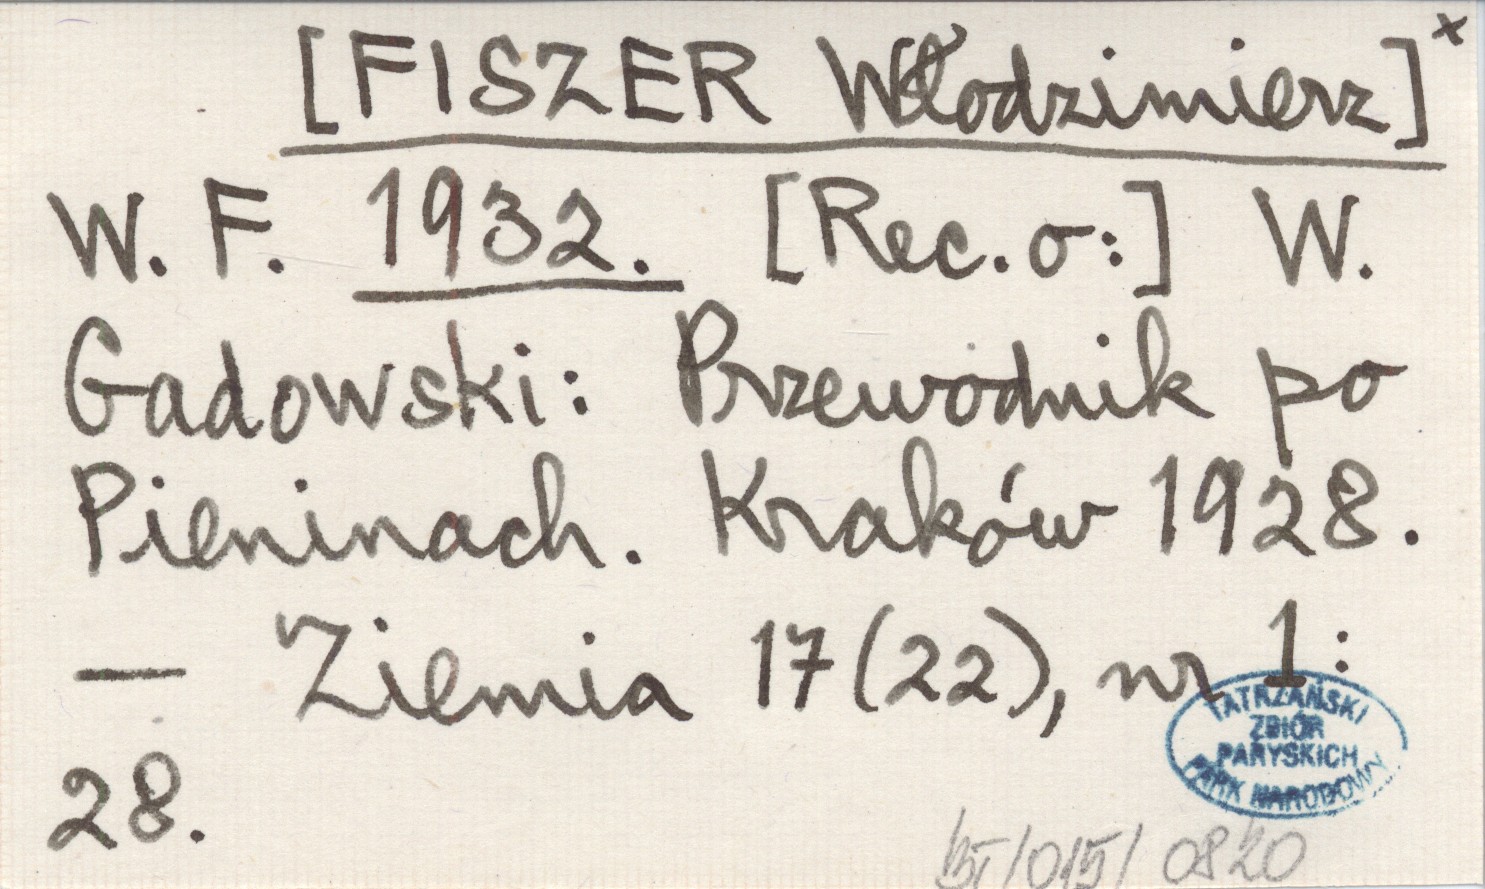 [FISZER Włodzimierz]x
W. F. 1932. [Rec. o:] W.
Gadowski: Przewodnik po
Pieninach. Kraków 1928.
— Ziemia 17(22), nr 1:
28.
TATRZAŃSKI
ZBIÓR
PARYSKICH
PARK NARODOWY
/015/ 0820